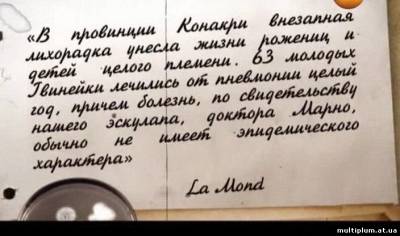 «В провинции Конакри внезапная
лихорадка унесла жизни рожениц и
детей целого племени. 63 молодых
Гвинейки лечились от пневмонии целый
год, причем болезнь, по свидетельству
нашего эскулапа, доктора Марно,
обычно не имеет эпидемического
характера»
La Mond
multiplum.at.ua